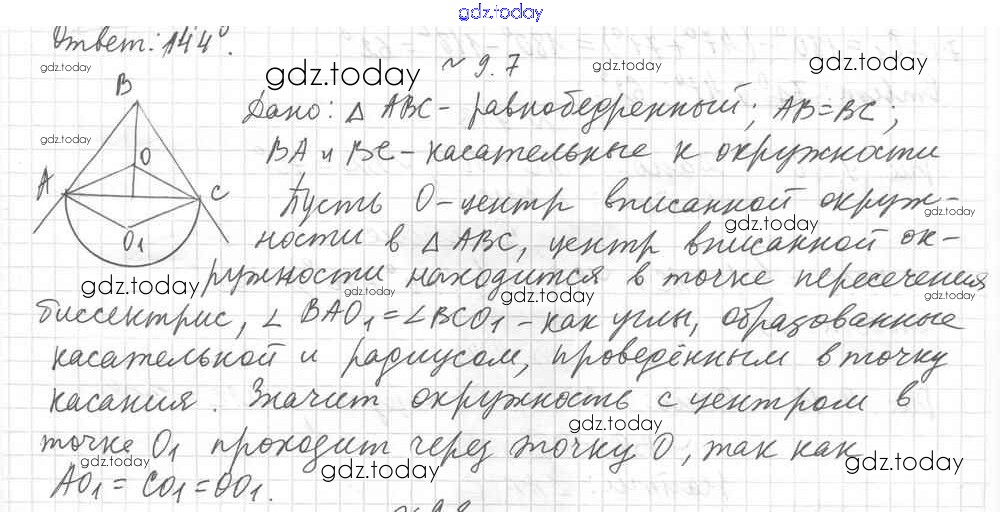 gdz.today
Ответ: 144°.
gdz.today
gdz.today
gdz.today
~ 9.7
gdz.today
gdz.today
gdz.today
B
O
A
C
O1
Дано: △ ABC - равнобедренный; AB=BC,
BA и BC - касательные к окружности
Пусть O - центр вписанной окруж-
gdz.today
gdz.today
ности в △ ABC, центр вписанной ок-
ружности находится в точке пересечения
gdz.today
gdz.today
gdz.today
gdz.today
биссектрис, ∠ BAO1 = ∠BCO1 - как углы, образованные
касательной и радиусом, проведённым в точку
gdz.today
gdz.today
касания. Значит окружность с центром в
gdz.today
точке O1 проходит через точку O, так как
gdz.today
gdz.today
gdz.today
AO1 = CO1 = OO1.